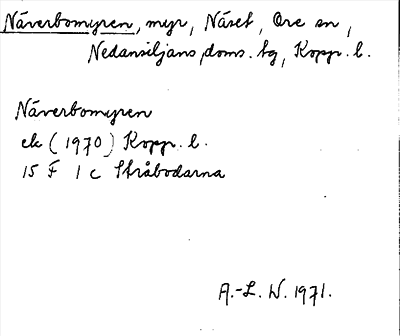 Näverbomyren, myr, Näset, Ore sn,
Nedansiljans doms. tg, Kopp. l.
Näverbomyren
ek (1970) Kopp. l.
15 F 1 c Stråbodarna
A.-L. W. 1971.